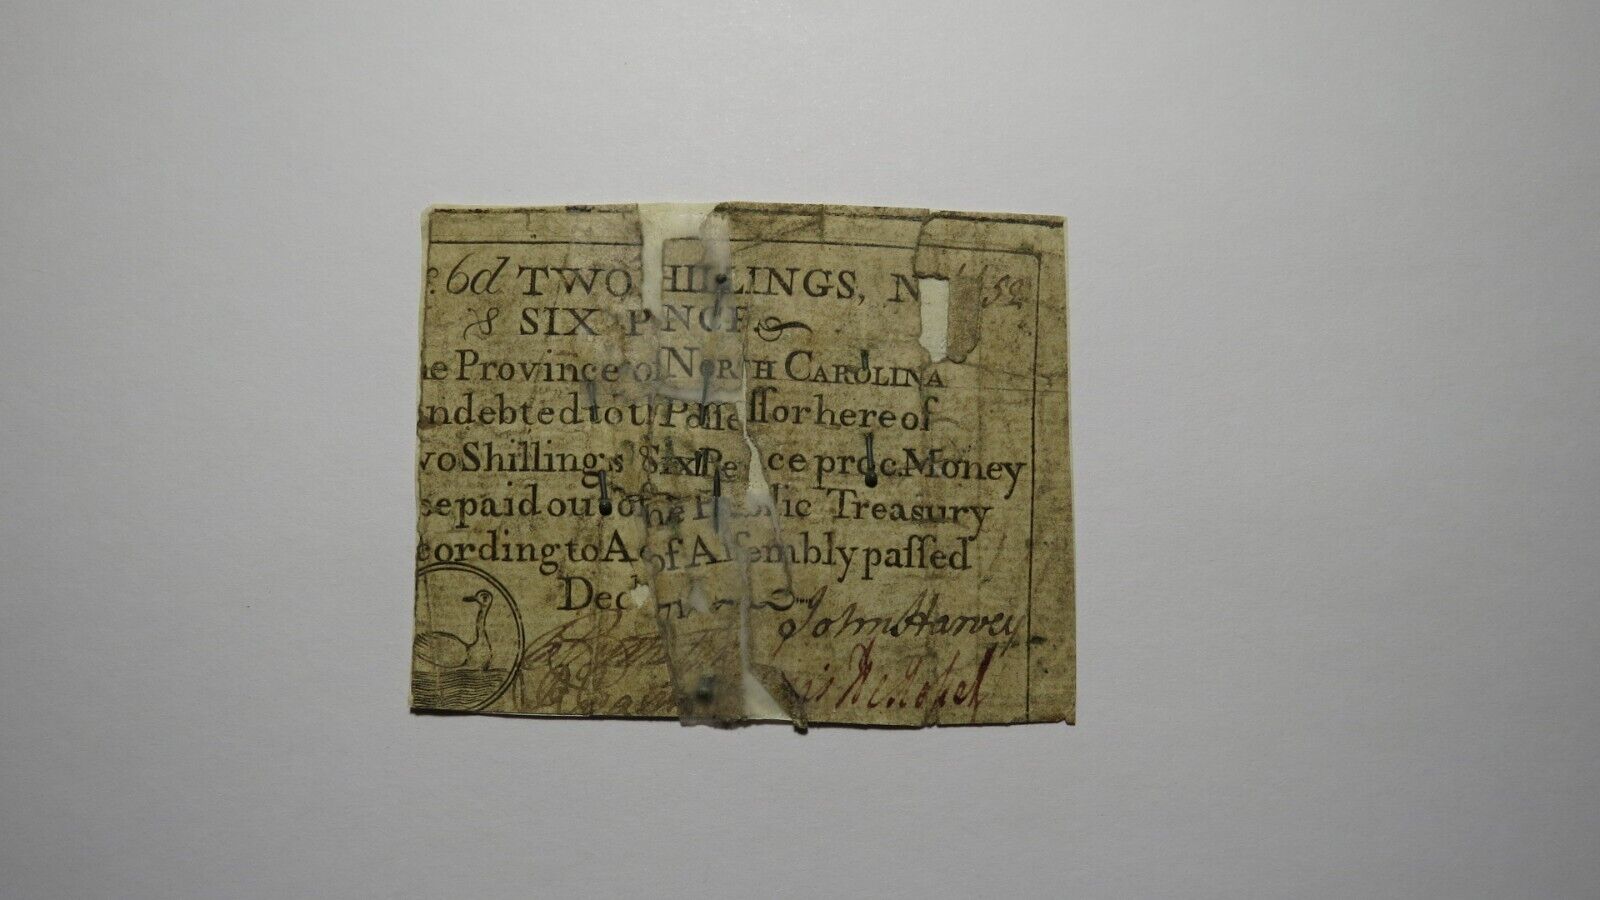 6d TWO HILLINGS, N 52
& SIX P NCE
e Province of NORTH CAROLINA
ndebted to th Poſſeſſor hereof
wo Shillings & Six Pence proc. Money
be paid out of the Public Treasury
cording to A of Aſſembly paſſed
Dec
John Harvey